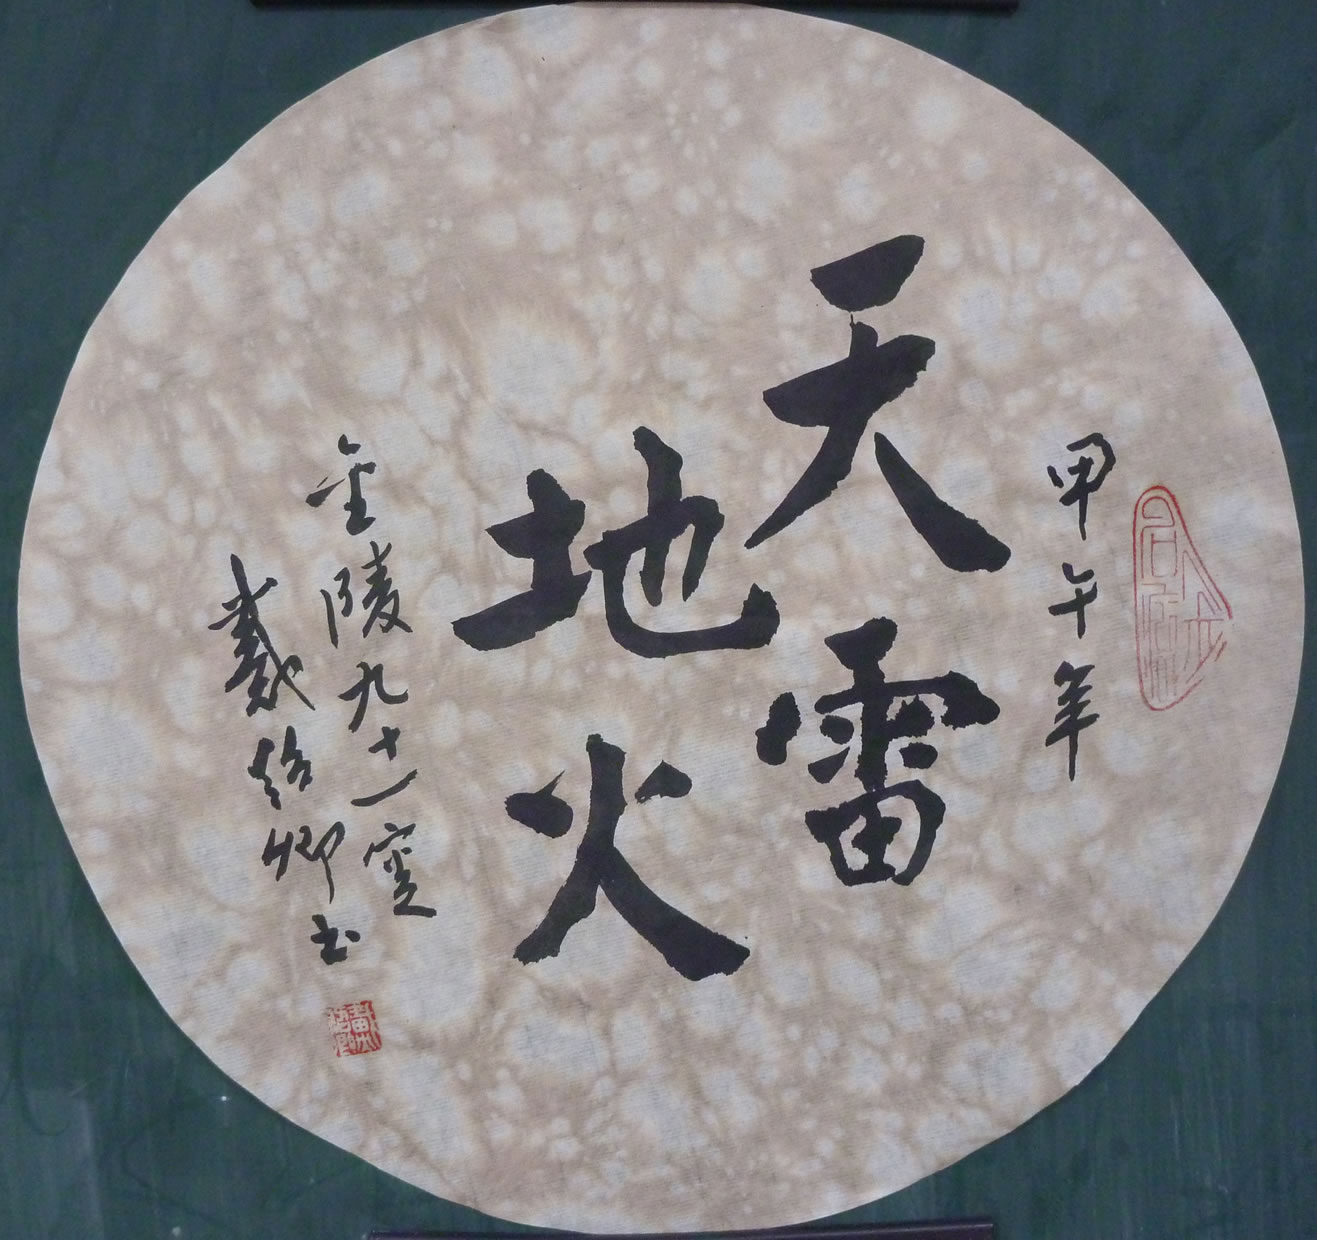 甲午年
天雷
地火
金陵九十一叟
戴紹卿书